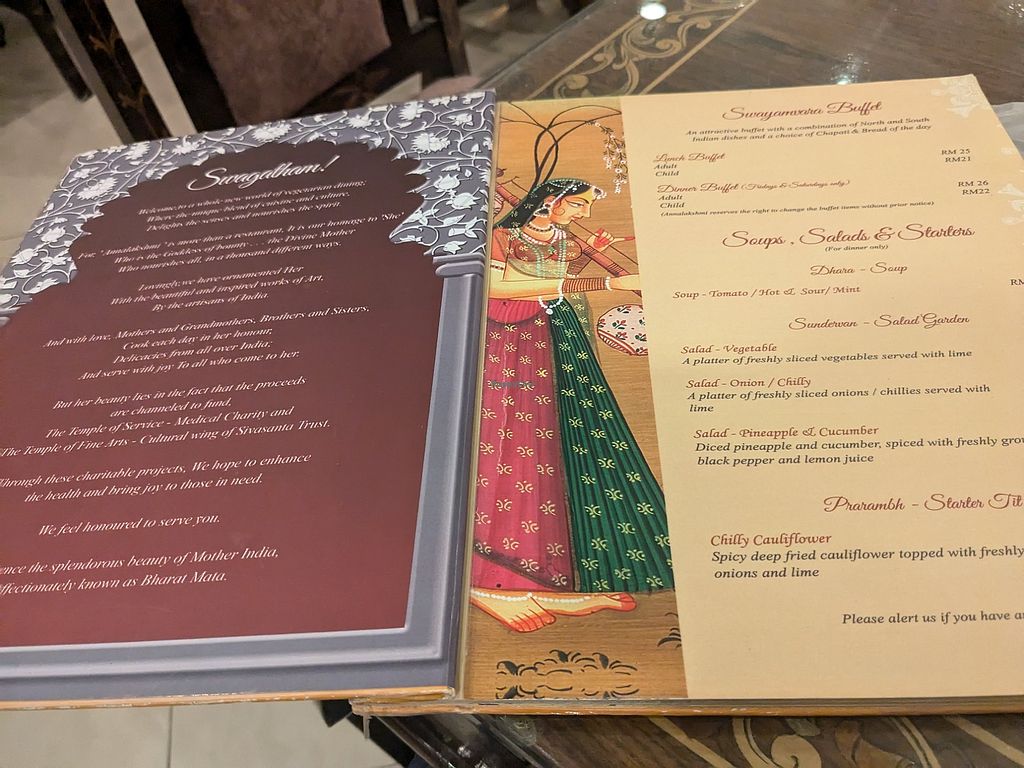 Swagatham!
Welcome to a whole new world of vegetarian dining;
Where the unique blend of cuisine and culture,
Delights the senses and nourishes the spirit.
For, 'Annalakshmi' is more than a restaurant. It is our homage to 'She'
Who is the Goddess of beauty . . . the Divine Mother
Who nourishes all, in a thousand different ways.
Lovingly, we have ornamented Her
With the beautiful and inspired works of Art,
By the artisans of India.
And with love, Mothers and Grandmothers, Brothers and Sisters,
Cook each day in her honour,
Delicacies from all over India;
And serve with joy To all who come to her.
But her beauty lies in the fact that the proceeds
are channeled to fund,
The Temple of Service - Medical Charity and
The Temple of Fine Arts - Cultural wing of Sivasanta Trust.
Through these charitable projects, We hope to enhance
the health and bring joy to those in need.
We feel honoured to serve you.
the splendorous beauty of Mother India,
known as Bharat Mata.
Swayamvara Buffet
An attractive buffet with a combination of North and South
Indian dishes and a choice of Chapati & Bread of the day
Lunch Buffet
Adult RM 25
Child RM21
Dinner Buffet (Fridays & Saturdays only)
Adult RM 26
Child RM22
(Annalakshmi reserves the right to change the buffet items without prior notice)
Soups , Salads & Starters
(For dinner only)
Dhara - Soup
Soup - Tomato / Hot & Sour/ Mint
Sundervan - Salad Garden
Salad - Vegetable
A platter of freshly sliced vegetables served with lime
Salad - Onion / Chilly
A platter of freshly sliced onions / chillies served with
lime
Salad - Pineapple & Cucumber
Diced pineapple and cucumber, spiced with freshly
black pepper and lemon juice
Prarambh - Starter
Chilly Cauliflower
Spicy deep fried cauliflower topped with freshly
onions and lime
Please alert us if you have